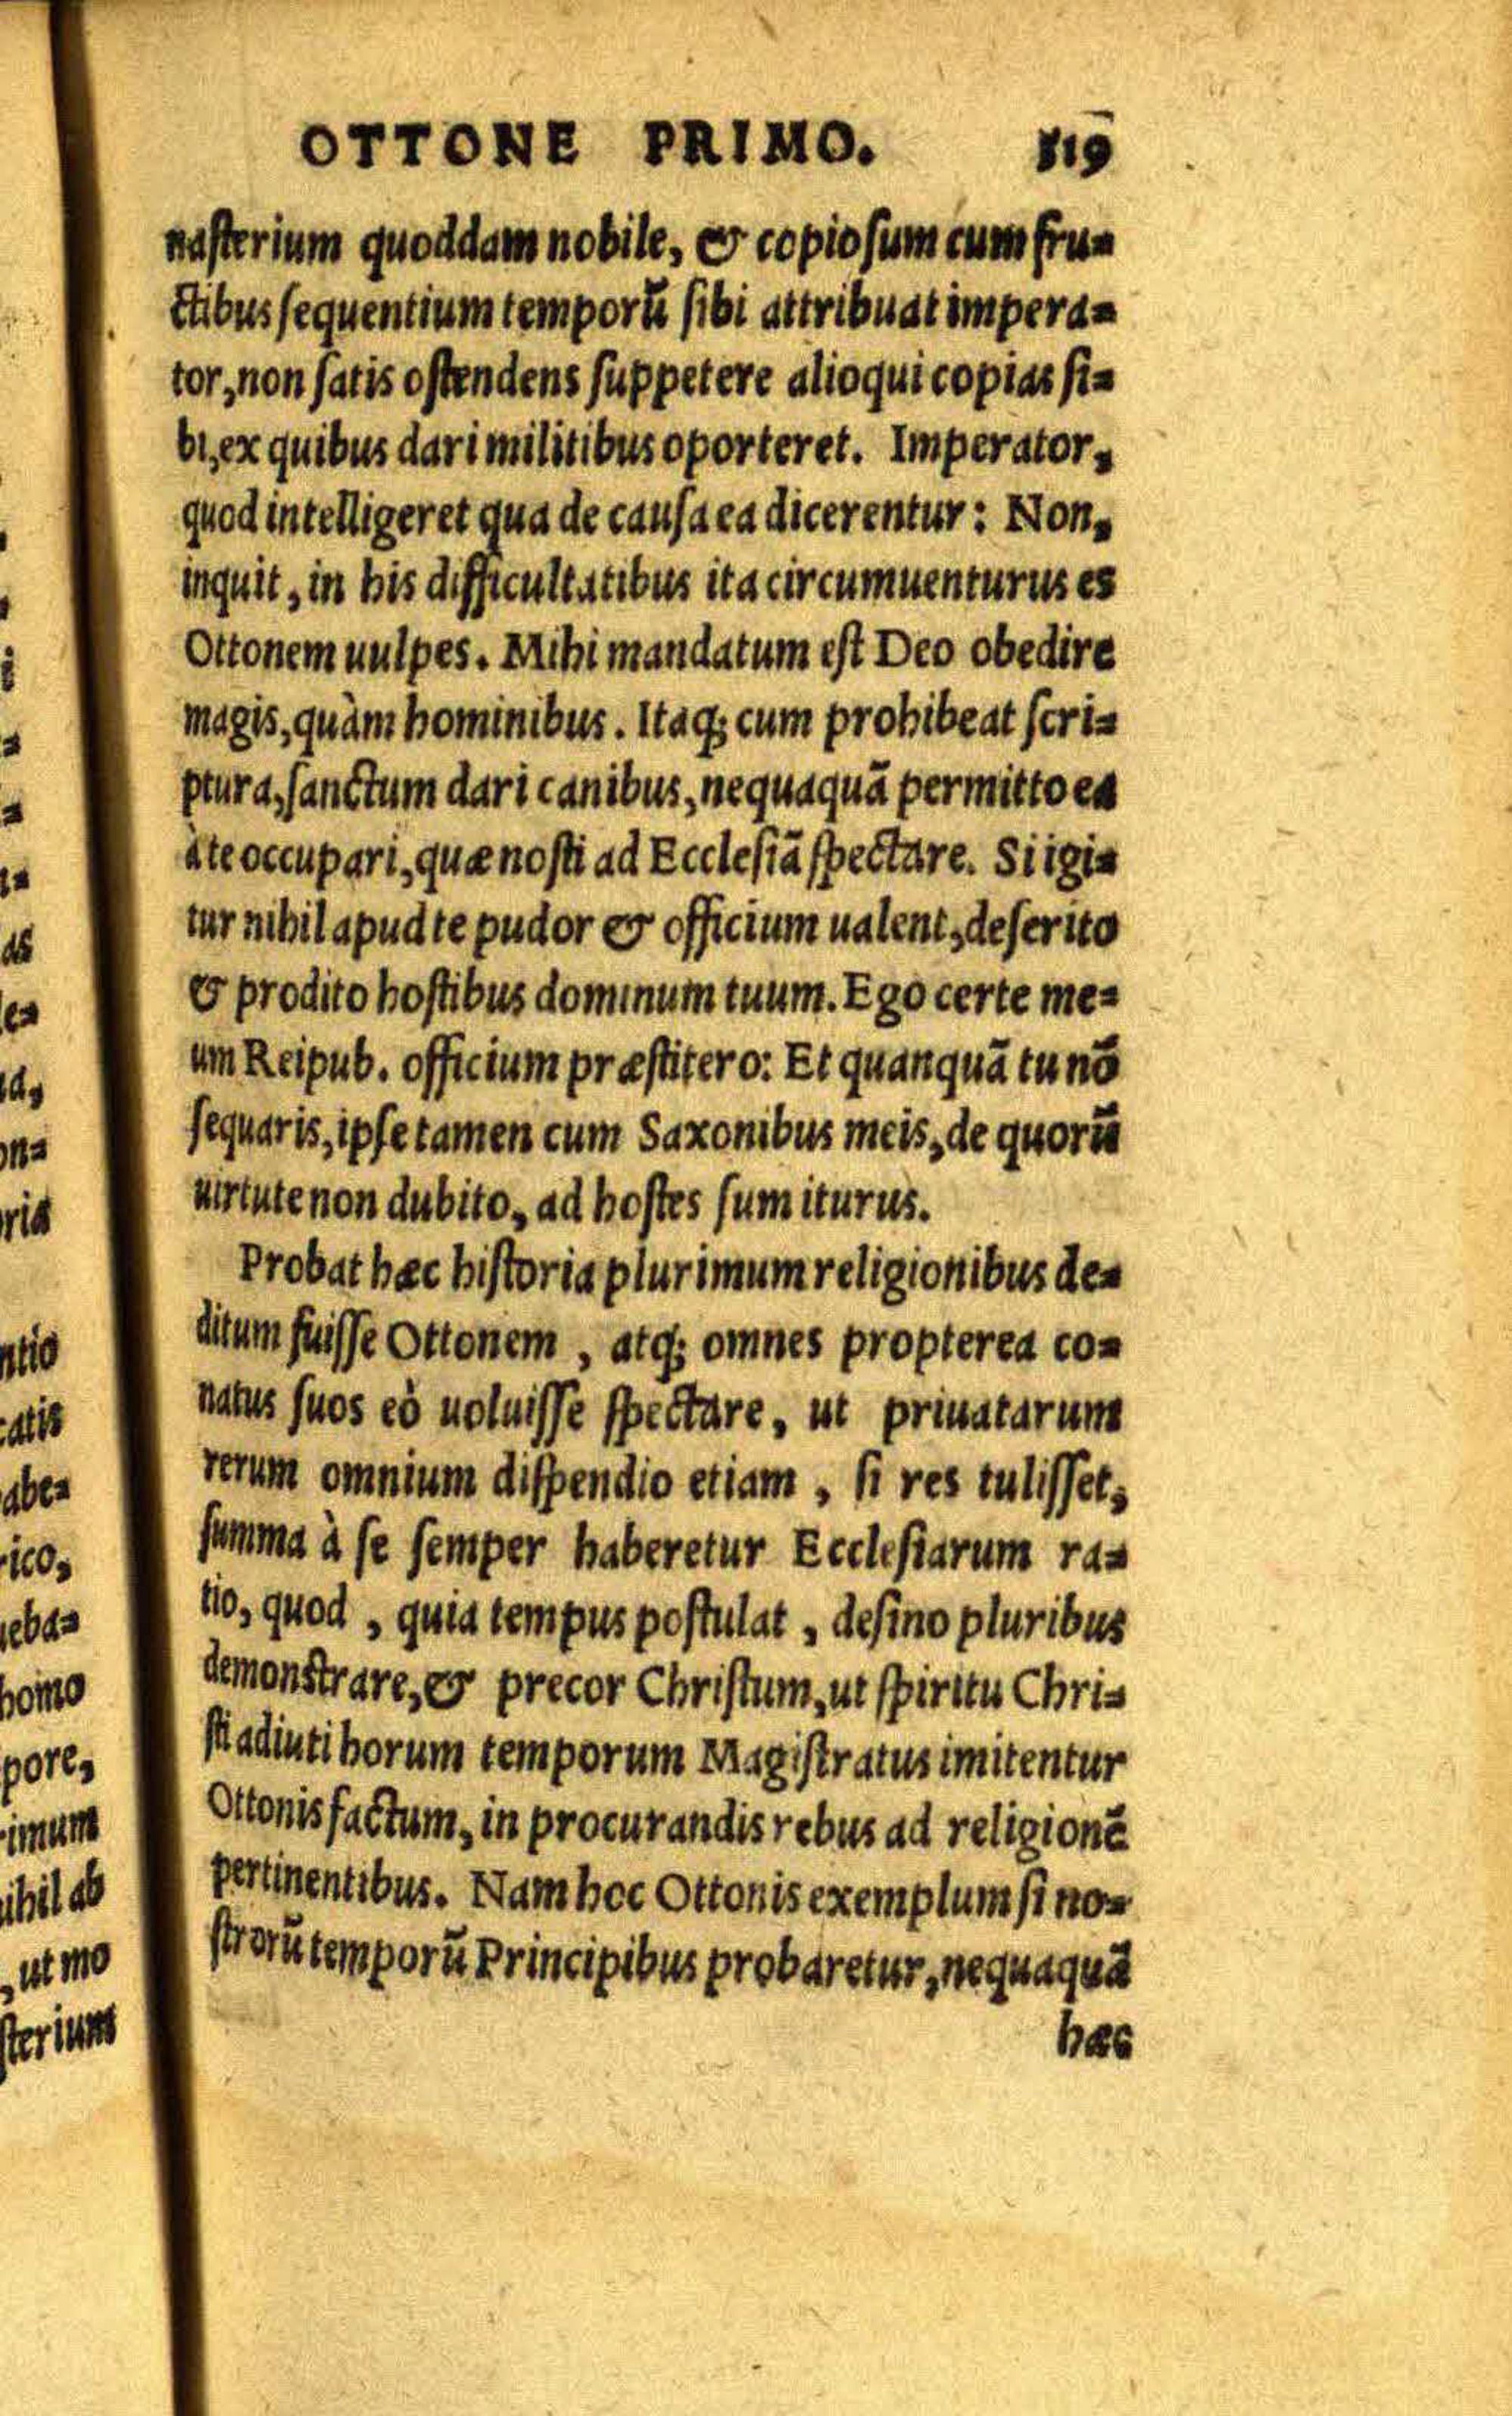 OTTONE PRIMO. 519
nasterium quoddam nobile, & copiosum cum fru-
ctibus sequentium temporū sibi attribuat impera-
tor, non satis ostendens suppetere alioqui copias si-
bi, ex quibus dari militibus oporteret. Imperator,
quod intelligeret qua de causa ea dicerentur: Non,
inquit, in his difficultatibus ita circumuenturus es
Ottonem uulpes. Mihi mandatum est Deo obedire
magis, quàm hominibus. Itaq; cum prohibeat scri-
ptura, sanctum dari canibus, nequaquā permitto ea
à te occupari, quæ nosti ad Ecclesiā spectare. Si igi-
tur nihil apud te pudor & officium ualent, deserito
& prodito hostibus dominum tuum. Ego certe me-
um Reipub. officium præstitero: Et quanquā tu nō
sequaris, ipse tamen cum Saxonibus meis, de quorū
uirtute non dubito, ad hostes sum iturus.
Probat hæc historia plurimum religionibus de-
ditum fuisse Ottonem, atq; omnes propterea co-
natus suos eò uoluisse spectare, ut priuatarum
rerum omnium dispendio etiam, si res tulisset,
summa à se semper haberetur Ecclesiarum ra-
tio, quod, quia tempus postulat, desino pluribus
demonstrare, & precor Christum, ut spiritu Chri-
sti adiuti horum temporum Magistratus imitentur
Ottonis factum, in procurandis rebus ad religionē
pertinentibus. Nam hoc Ottonis exemplum si no-
strorū temporū Principibus probaretur, nequaquā
hæc